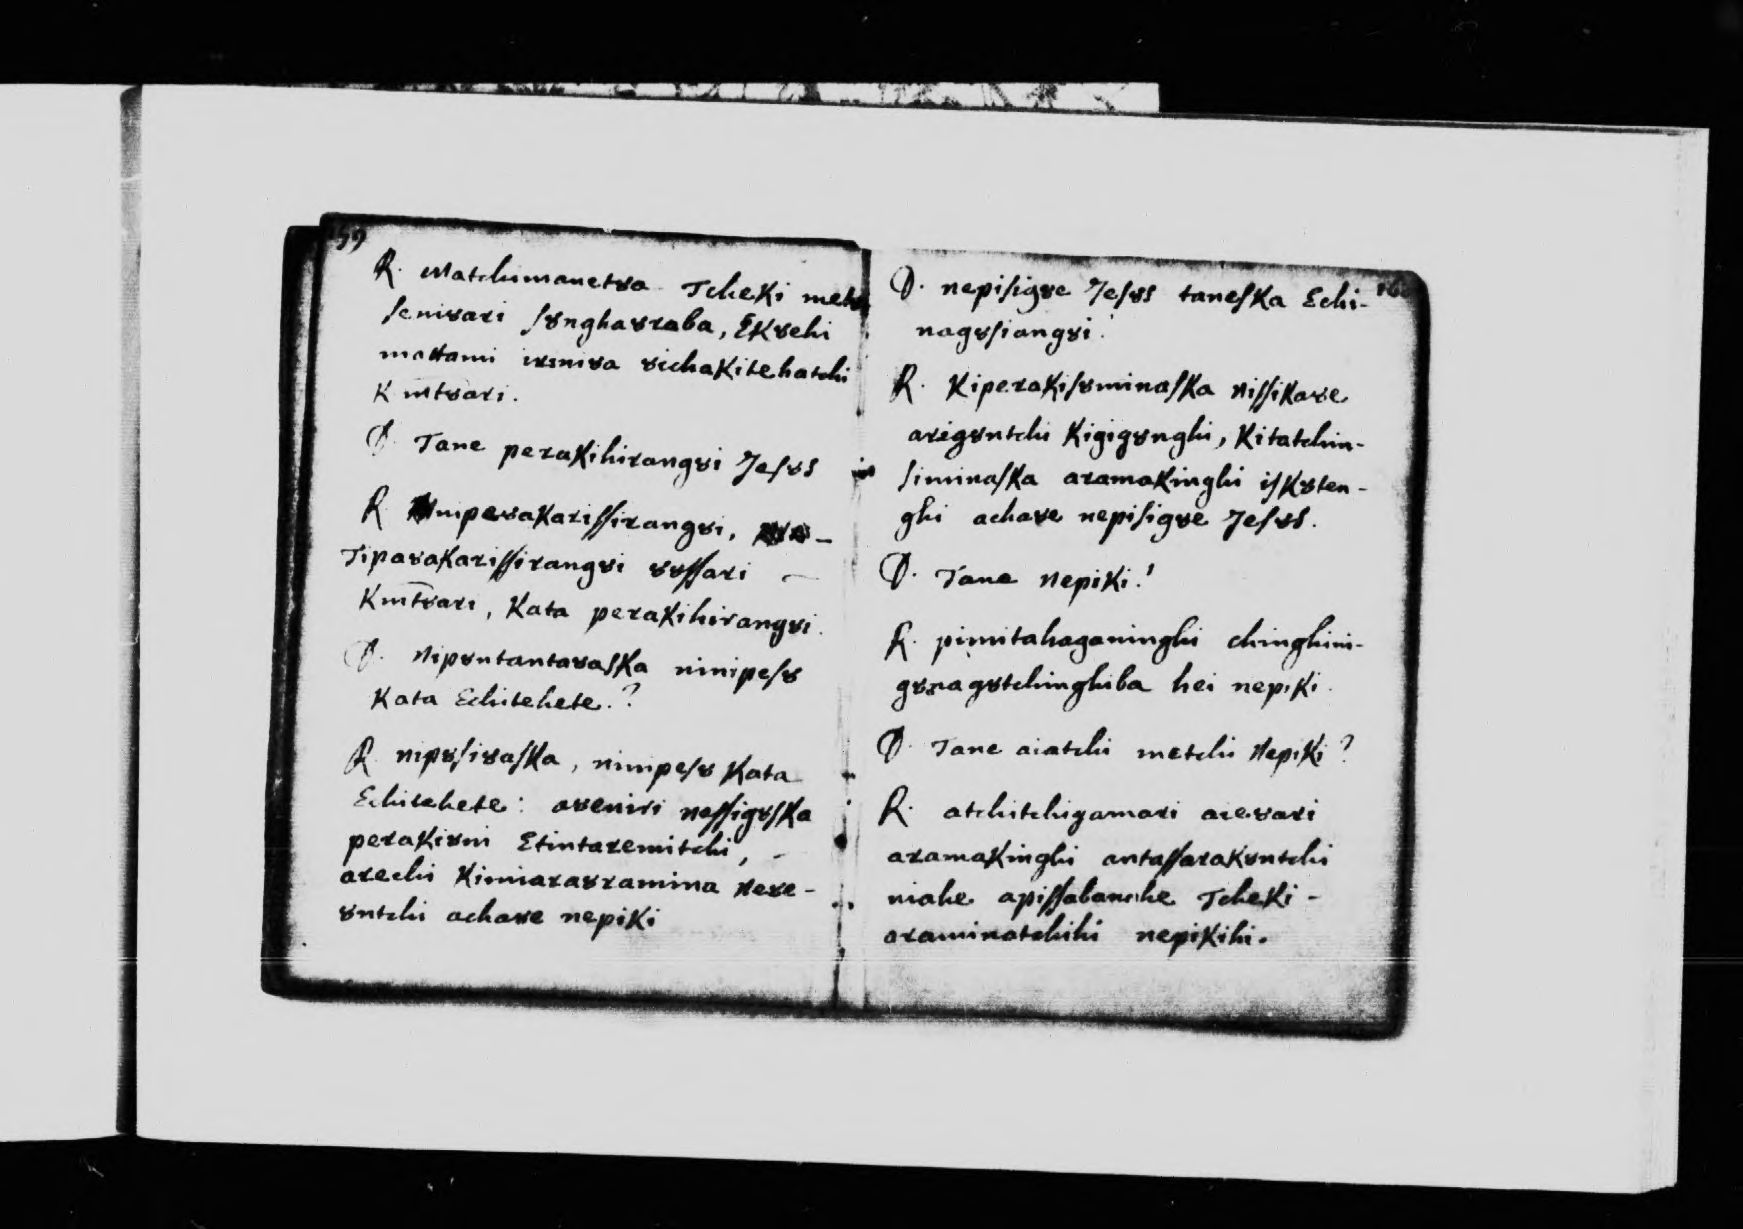 59
R. Matchimanetȣa Tcheki metȣ
seniȣari sȣnghaȣraba, Ekȣchi
mattami irȣniȣa ȣichakitehatchi
K m̄tȣari.
D. Tane perakihirangȣi Jesȣs
R nipeȣakarissirangȣi,
Tipaȣakarissirangȣi ȣȣssari —
Km̄tȣari, Kata perakihirangȣi.
D. Nipȣntantaȣaska ninipesȣ
Kata Echitehete.?
R nipȣsiȣaska, ninipesȣ Kata
Echitehete: aȣeniri nessigȣska
perakiȣni Etintaremitchi, -
arechi Kimiaraȣramina Neȣe-
ȣntchi achaȣe nepiki
160
D. nepisigȣe Jesȣs taneska Echi-
nagȣsiangȣi.
R. Kiperakisȣminaska Nissikaȣe
arigȣntchi Kigigȣnghi, Kitatchin-
siminaska aramakinghi iskȣten-
ghi achaȣe nepisigȣe Jesȣs.
D. Tane Nepiki.!
R. pimitahaganinghi chinghini-
gȣnagȣtchinghiba hei nepiki.
D. Tane aiatchi metchi Nepiki?
R. atchitchigamari aieȣari
aramakinghi antassarakȣntchi
niahe apissabanche Tcheki -
araminatchihi nepikihi.